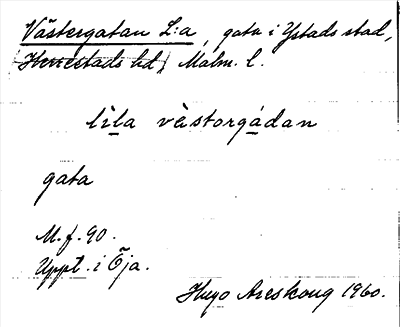 Västergatan L:a, gata i Ystads stad,
Herrestads hd, Malm. l.
lila västorgádan
gata
M.f. 90.
Uppt. i Öja.
Hugo Areskoug 1960.